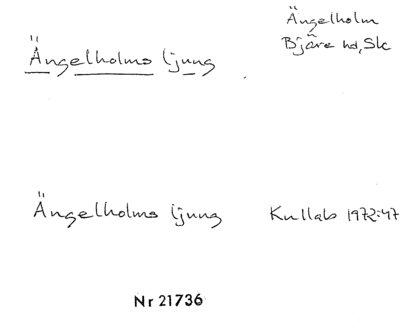 Ängelholms ljung
Ängelholm
Bjäre hd, Sk
Ängelholms ljung
Kullab 1972:47
Nr 21736